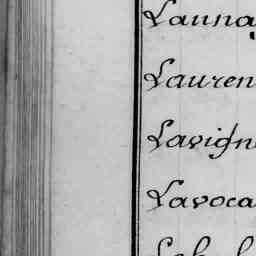 Launay
Lauren
Lavign
Lavoca